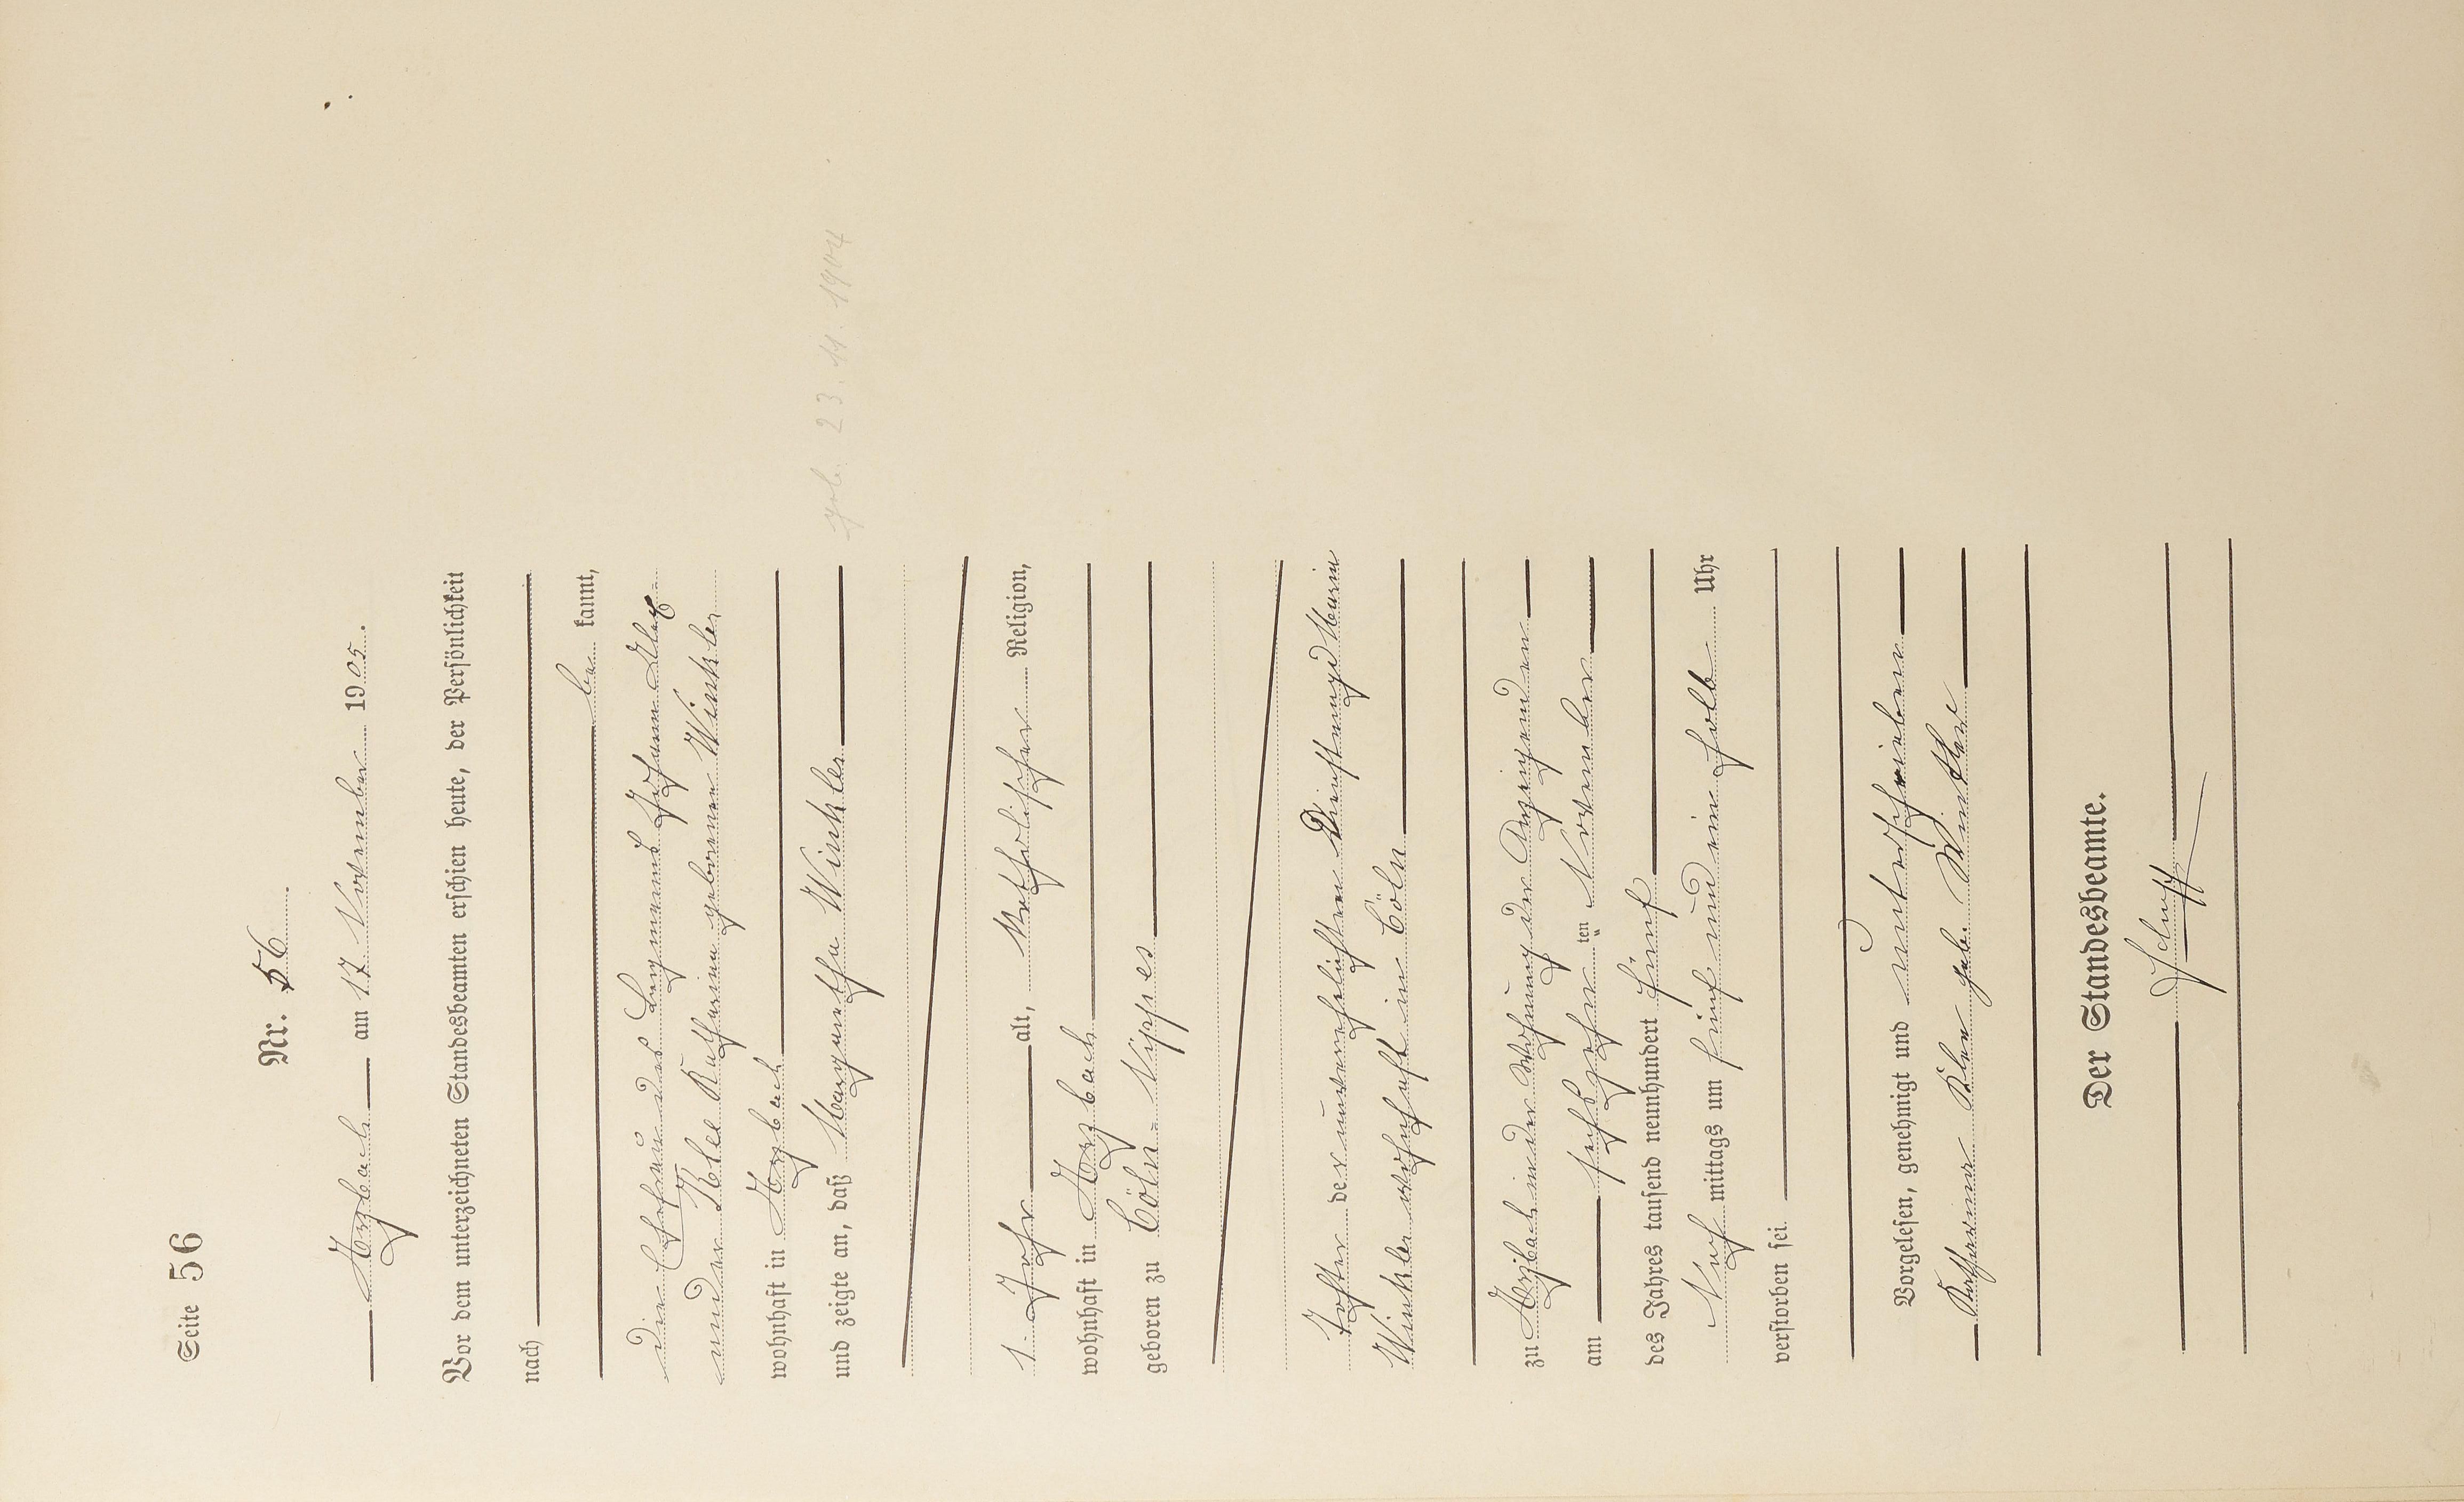 Seite 56
Nr. 56
Arzbach am 17. November 1905.
Vor dem unterzeichneten Standesbeamten erschien heute, der Persönlichkeit
nach
be kannt,
die Ehefrau des Bergmanns Johann
und der Klee Katharina geborenen Winkler
wohnhaft in Arzbach
und zeigte an, daß Margaretha Winkler
geb. 23. 11. 1904
1 Jahr alt, Katholischer Religion,
wohnhaft in Arzbach
geboren zu Cöln-Nippes
Tochter der unverehelichten Dienstmagd Maria
Winkler wohnhaft in Cöln
zu Arzbach in der Wohnung der Anzeigenden
am sechszehnten November
des Jahres tausend neunhundert fünf
Nach mittags um fünf und ein halb Uhr
verstorben sei.
Vorgelesen, genehmigt und unterschrieben
Katharina Klee geb. Winkler
Der Standesbeamte.